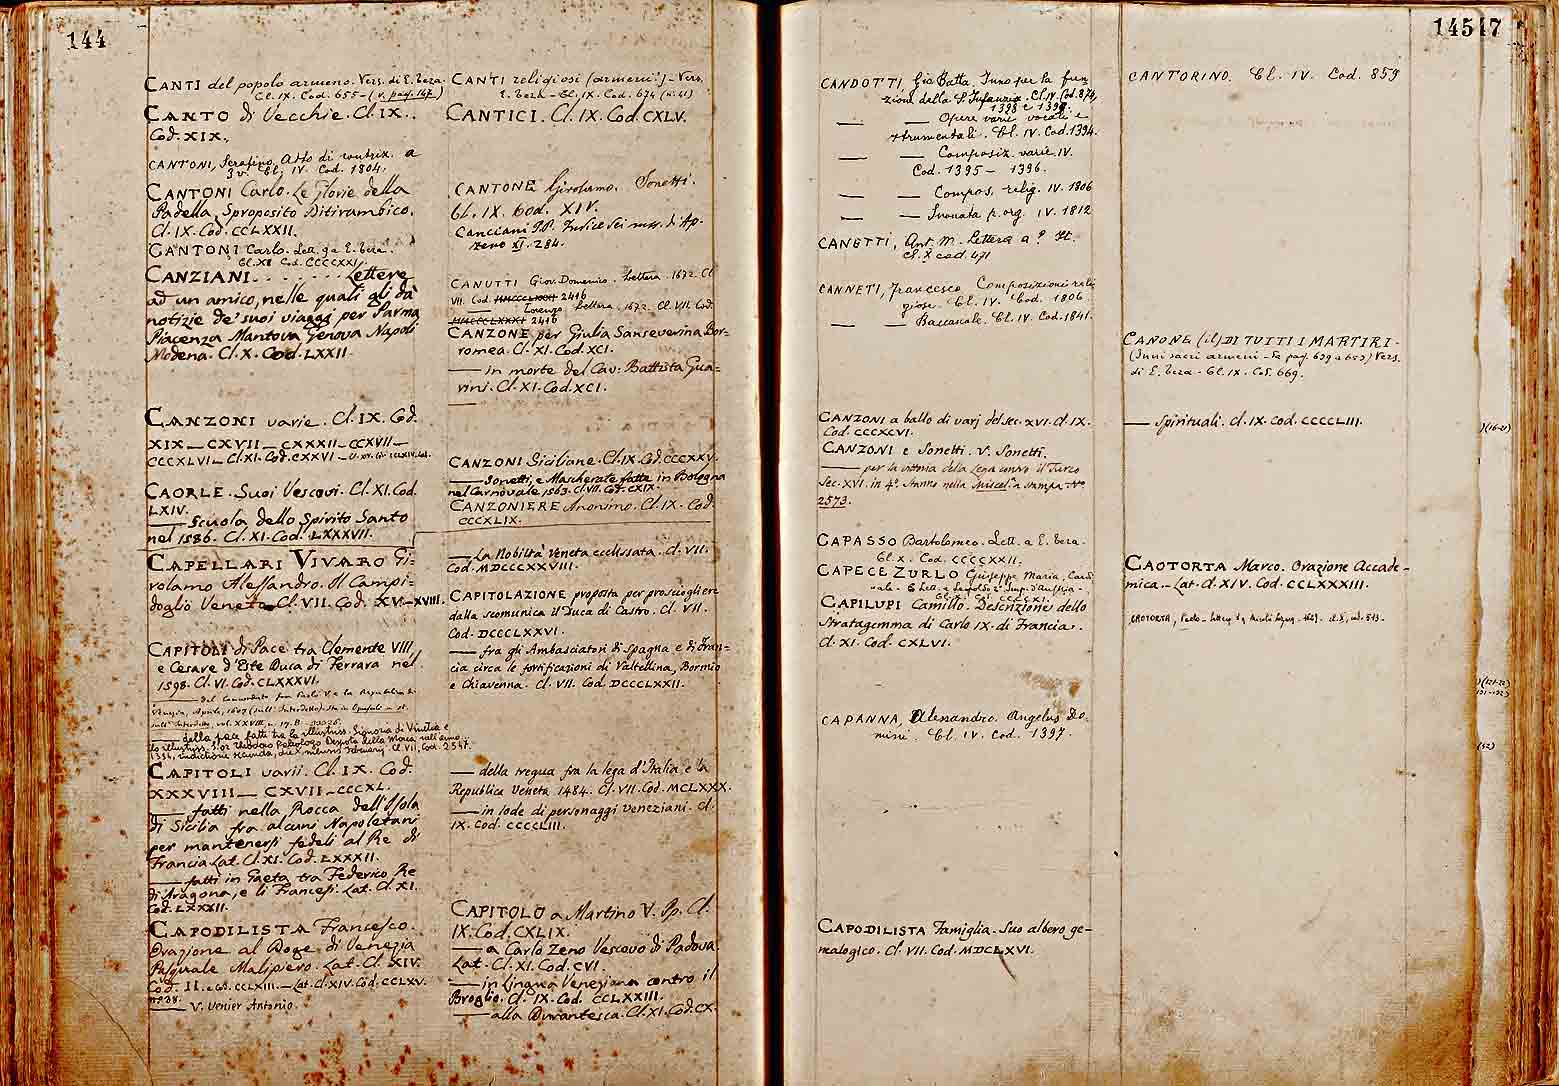 144
CANTI del popolo armeno. Vers. di E. Teza.
Cl. IX. Cod. 655 - (v. pag. 147)
CANTO di Vecchie. Cl. IX.
Cod. XIX.
CANTONI, Serafino, Atto di contriz. a
3 v. Cl. IV. Cod. 1804.
CANTONI Carlo. Le Glorie della
Padella, Sproposito Ditirambico.
Cl. IX. Cod. CCLXXII.
CANTONI Carlo. Lett. 9 a E. Teza.
Cl. XI Cod. CCCCXXI.
CANZIANI . . . . . . Lettere
ad un amico, nelle quali gli dà
notizie de' suoi viaggi per Parma
Piacenza Mantova Genova Napoli
Modena. Cl. X. Cod. LXXII.
CANZONI varie. Cl. IX. Cod.
XIX — CXVII — CXXXII — CCXVII —
CCCXLVI — Cl. XI. Cod. CXXVI —
CAORLE. Suoi Vescovi. Cl. XI. Cod.
LXIV.
— Scuola dello Spirito Santo
nel 1586. Cl. XI. Cod. LXXXVII.
CAPELLARI VIVARO Gi-
rolamo Alessandro. Il Campi-
doglio Veneto Cl. VII. Cod. XV — XVIII.
CAPITOLI di Pace tra Clemente VIII,
e Cesare d'Este Duca di Ferrara nel
1598. Cl. VI. Cod. CLXXXVI.
Venezia, Aprile, 1607
— della pace fatti tra la illustriss. Signoria di Venetia e
lo illustriss. S.or Theodoro Paleologo Despota della Morea nell'anno
1394, indictione secunda, die X mensis februarij. Cl. VII, Cod. 2547.
CAPITOLI varii. Cl. IX. Cod.
XXXVIII — CXVII — CCCXL.
— fatti nella Rocca dell'Isola
di Sicilia fra alcuni Napoletani
per mantenersi fedeli al Re di
Francia Lat. Cl. XI. Cod. LXXXII.
— fatti in Gaeta tra Federico Re
di Aragona, e li Francesi. Lat. Cl. XI.
Cod. LXXXII.
CAPODILISTA Francesco.
Orazione al Doge di Venezia
Pasquale Malipiero Lat. Cl. XIV.
Cod. II. e Cod. CCLXIII. — Lat. Cl. XIV. Cod. CCLXV.
nº 38.
— V. Venier Antonio.
CANTI religiosi (armeni) - Vers.
E. Teza - Cl. IX - Cod. 674 (n. 41)
CANTICI. Cl. IX. Cod. CXLV.
CANTONE Girolamo. Sonetti.
Cl. IX. Cod. XIV.
Canciani P.P. Indice dei mss. di Ap.
zeno XI. 284.
CANUTTI Giov. Domenico. Lettera. 1672. Cl
VII. Cod. MMCCCLXXXI 2416
— Lorenzo Lettera. 1672. Cl. VII. Cod.
MMCCCLXXXI 2416
CANZONE per Giulia Sanseverina Bor-
romea. Cl. XI. Cod. XCI.
— in morte del Cav: Battista Gua-
rini. Cl. XI. Cod. XCI.
CANZONI Siciliane. Cl. IX. Cod. CCCXXV.
— Sonetti, e Mascherate fatte in Bologna
nel Carnovale 1563. Cl. VII. Cod. CXIX.
CANZONIERE Anonimo. Cl. IX. Cod.
CCCXLIX.
— La Nobiltà Veneta ecclissata. Cl. VII.
Cod. MDCCCXXVIII.
CAPITOLAZIONE proposta per prosciogliere
dalla scomunica il Duca di Castro. Cl. VII.
Cod. DCCCLXXVI.
— fra gli Ambasciatori di Spagna e di Fran-
cia circa le fortificazioni di Valtellina, Bormio
e Chiavenna. Cl. VII. Cod. DCCCLXXII.
— della tregua fra la lega d'Italia e la
Republica Veneta 1484. Cl. VII. Cod. MCLXXX.
— in lode di personaggi Veneziani. Cl.
IX. Cod. CCCCLIII.
CAPITOLO a Martino V. Pp. Cl.
IX. Cod. CXLIX.
— a Carlo Zeno Vescovo di Padova
Lat. Cl. XI. Cod. CVI.
— in Lingua Veneziana contro il
Broglio. Cl. IX. Cod. CCLXXIII.
— alla Burantesca. Cl. XI. Cod. CX.
14517
CANDOTTI, Gio Batta. Inno per la fun
zione della S. Infanzia. Cl. IV. Cod. 874,
1393 e 1399.
— — Opere varie vocali e
strumentali. Cl. IV. Cod. 1394.
— — Composiz. varie IV.
Cod. 1395 - 1396.
— — Compos. relig. IV. 1806
— — Suonata p. org. IV. 1812
CANETTI, Ant. M. Lettera a
Cl. X cod. 471
CANNETI, Francesco Composizioni reli
giose. Cl. IV. Cod. 1806
— — Baccanale. Cl. IV. Cod. 1841.
CANZONI a ballo di varj del Sec. XVI. Cl. IX.
Cod. CCCXCVI.
CANZONI e Sonetti. V. Sonetti.
— per la vittoria della Lega contro il Turco
Sec. XVI. in 4º Stanno nella Miscel.a a stampa Nº
2573.
CAPASSO Bartolomeo. Lett. a E. Teza.
Cl. X. Cod. CCCCXXII.
CAPECE ZURLO Giuseppe Maria, Cardi
nale.
CAPILUPI Camillo. Descrizione dello
Stratagemma di Carlo IX. di Francia.
Cl. XI. Cod. CXLVI.
CAPANNA, Alessandro. Angelus Do-
mini. Cl. IV. Cod. 1397.
CAPODILISTA Famiglia. Suo albero ge-
nealogico. Cl. VII. Cod. MDCLXVI.
CANTORINO. Cl. IV. Cod. 859
CANONE (il) DI TUTTI I MARTIRI -
(Inni sacri armeni - Fe pag. 639 a 653) Vers.
di E. Teza - Cl. IX - Cod. 669.
— Spirituali. Cl. IX. Cod. CCCCLIII.
CAOTORTA Marco. Orazione Accade-
mica. - Lat. Cl. XIV. Cod. CCLXXXIII.
CAOTORTA, Paolo -
)(16-21)
)(121-22)
131-132)
(52)